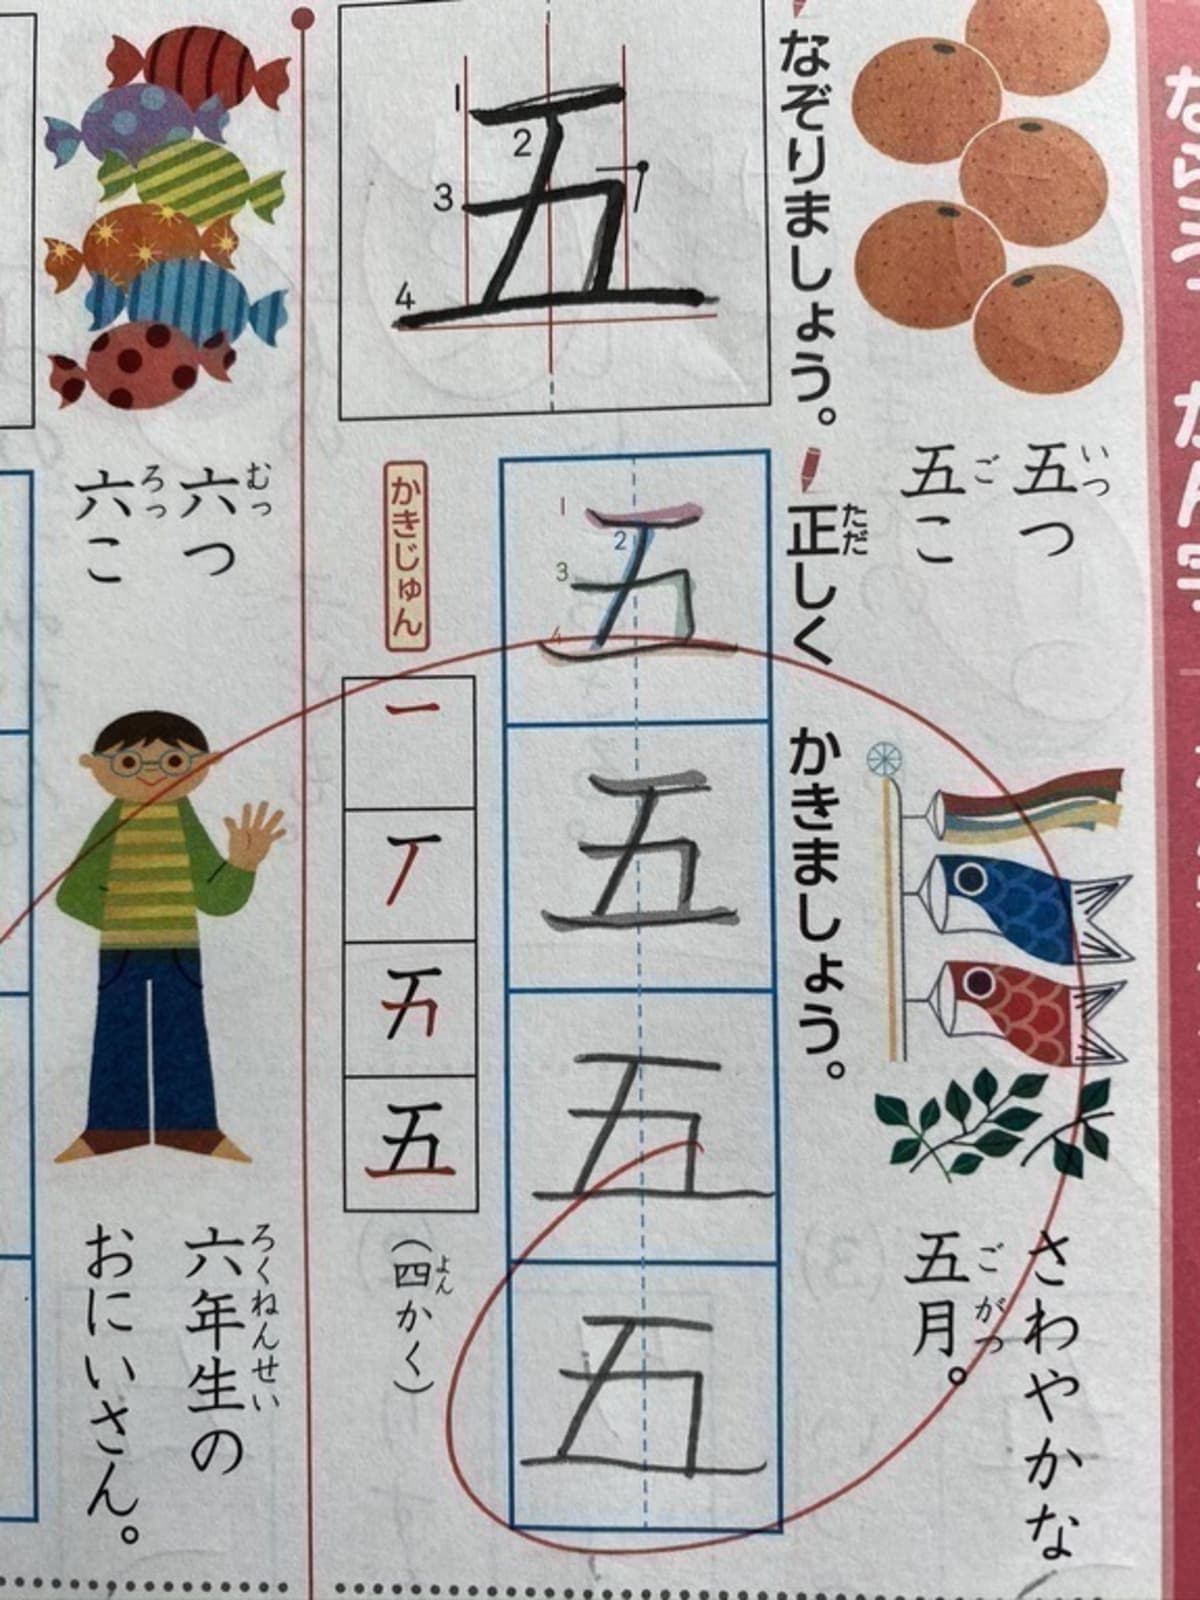 ならう かん字
五つ
いつ
五こ
ご
さわやかな
五月。
ごがつ
なぞりましょう。
正しく かきましょう。
ただ
1
2
3
4
五
1
2
3
4
五
五
五
五
かきじゅん
一
五
(四かく)
よん
六つ
むっ
六こ
ろっ
六年生の
ろくねんせい
おにいさん。